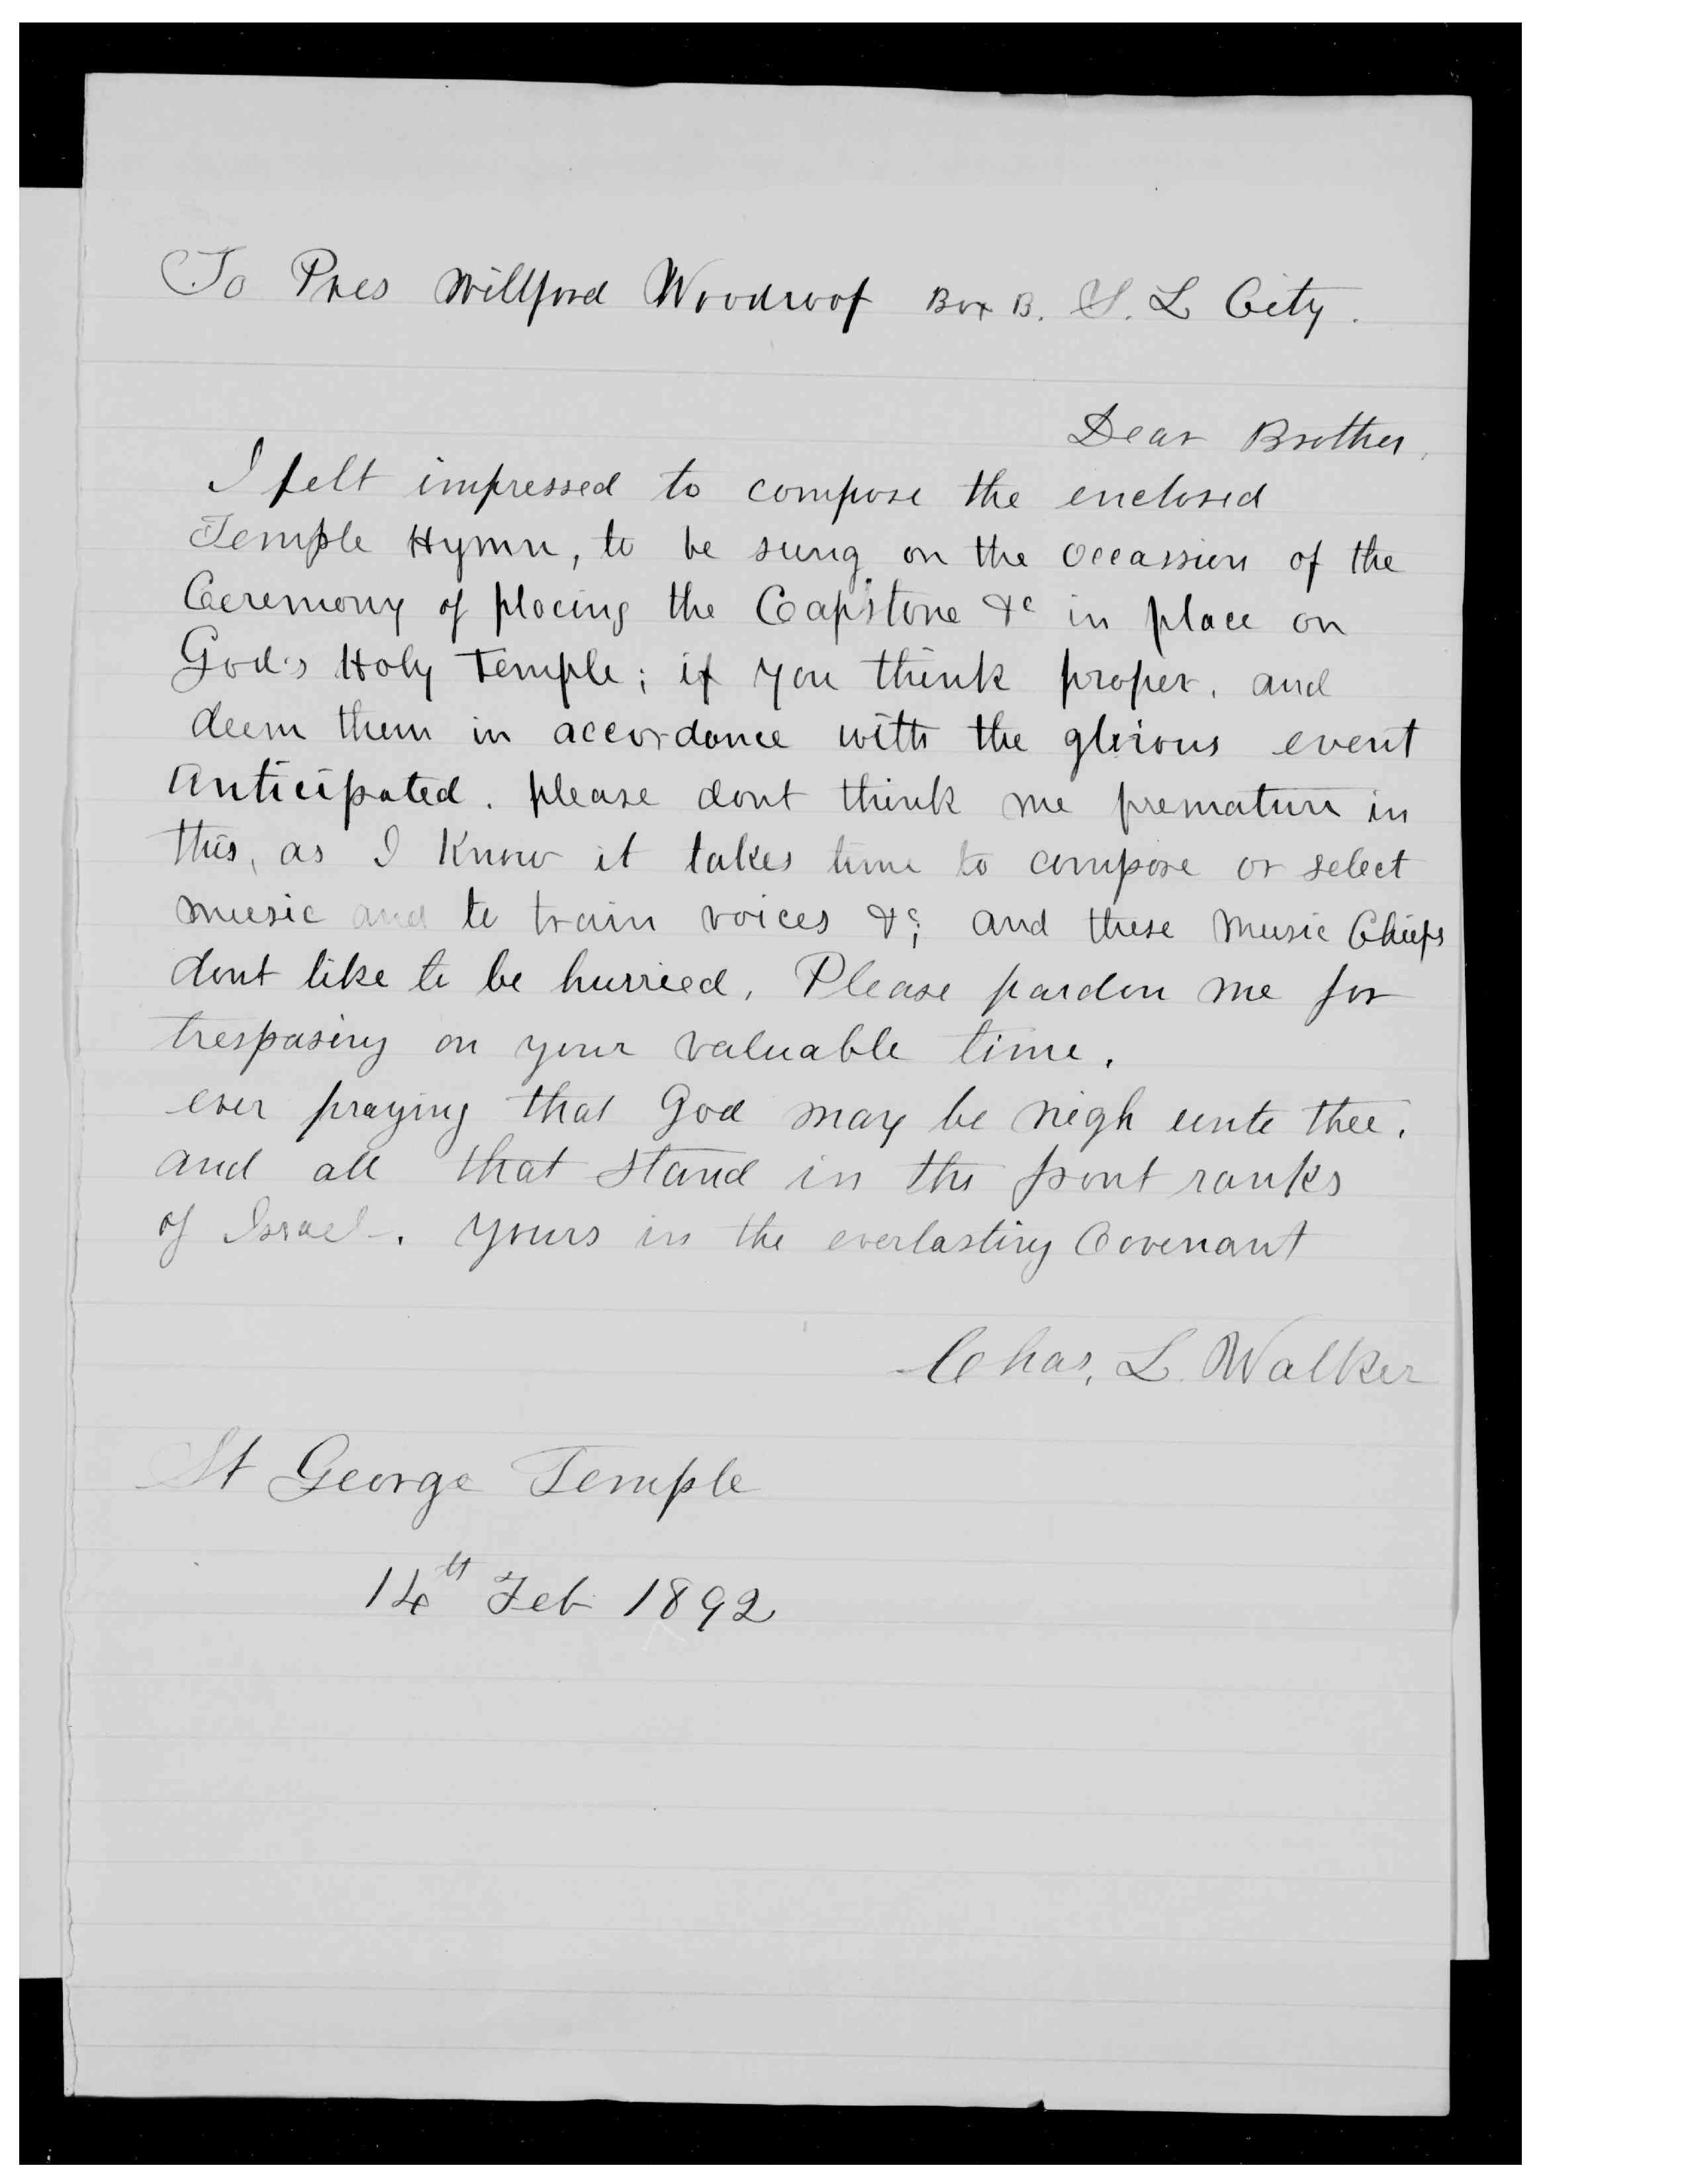 To Pres Willford Woodroof Box B. S. L City.
Dear Brother,
I felt impressed to compose the enclosed
Temple Hymn, to be sung on the Occassion of the
Ceremony of placing the Capstone &c in place on
God's Holy Temple; if you think proper, and
deem them in accordance with the glorious event
Anticipated. please dont think me premature in
this, as I Know it takes time to compose or select
music and to train voices &c; and these Music Chiefs
dont like to be hurried, Please pardon me for
trespasing on your valuable time.
ever praying that God may be nigh unto thee,
and all that stand in the front ranks
of Israel. Yours in the everlasting Covenant
Chas, L. Walker
St George Temple
14th Feb 1892